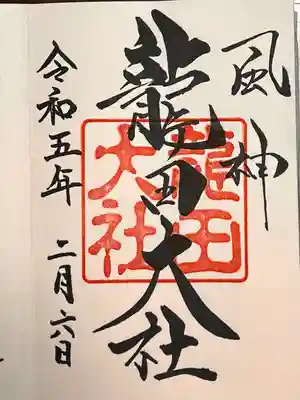 風神
龍田大社
龍田
大社
令和五年 二月六日